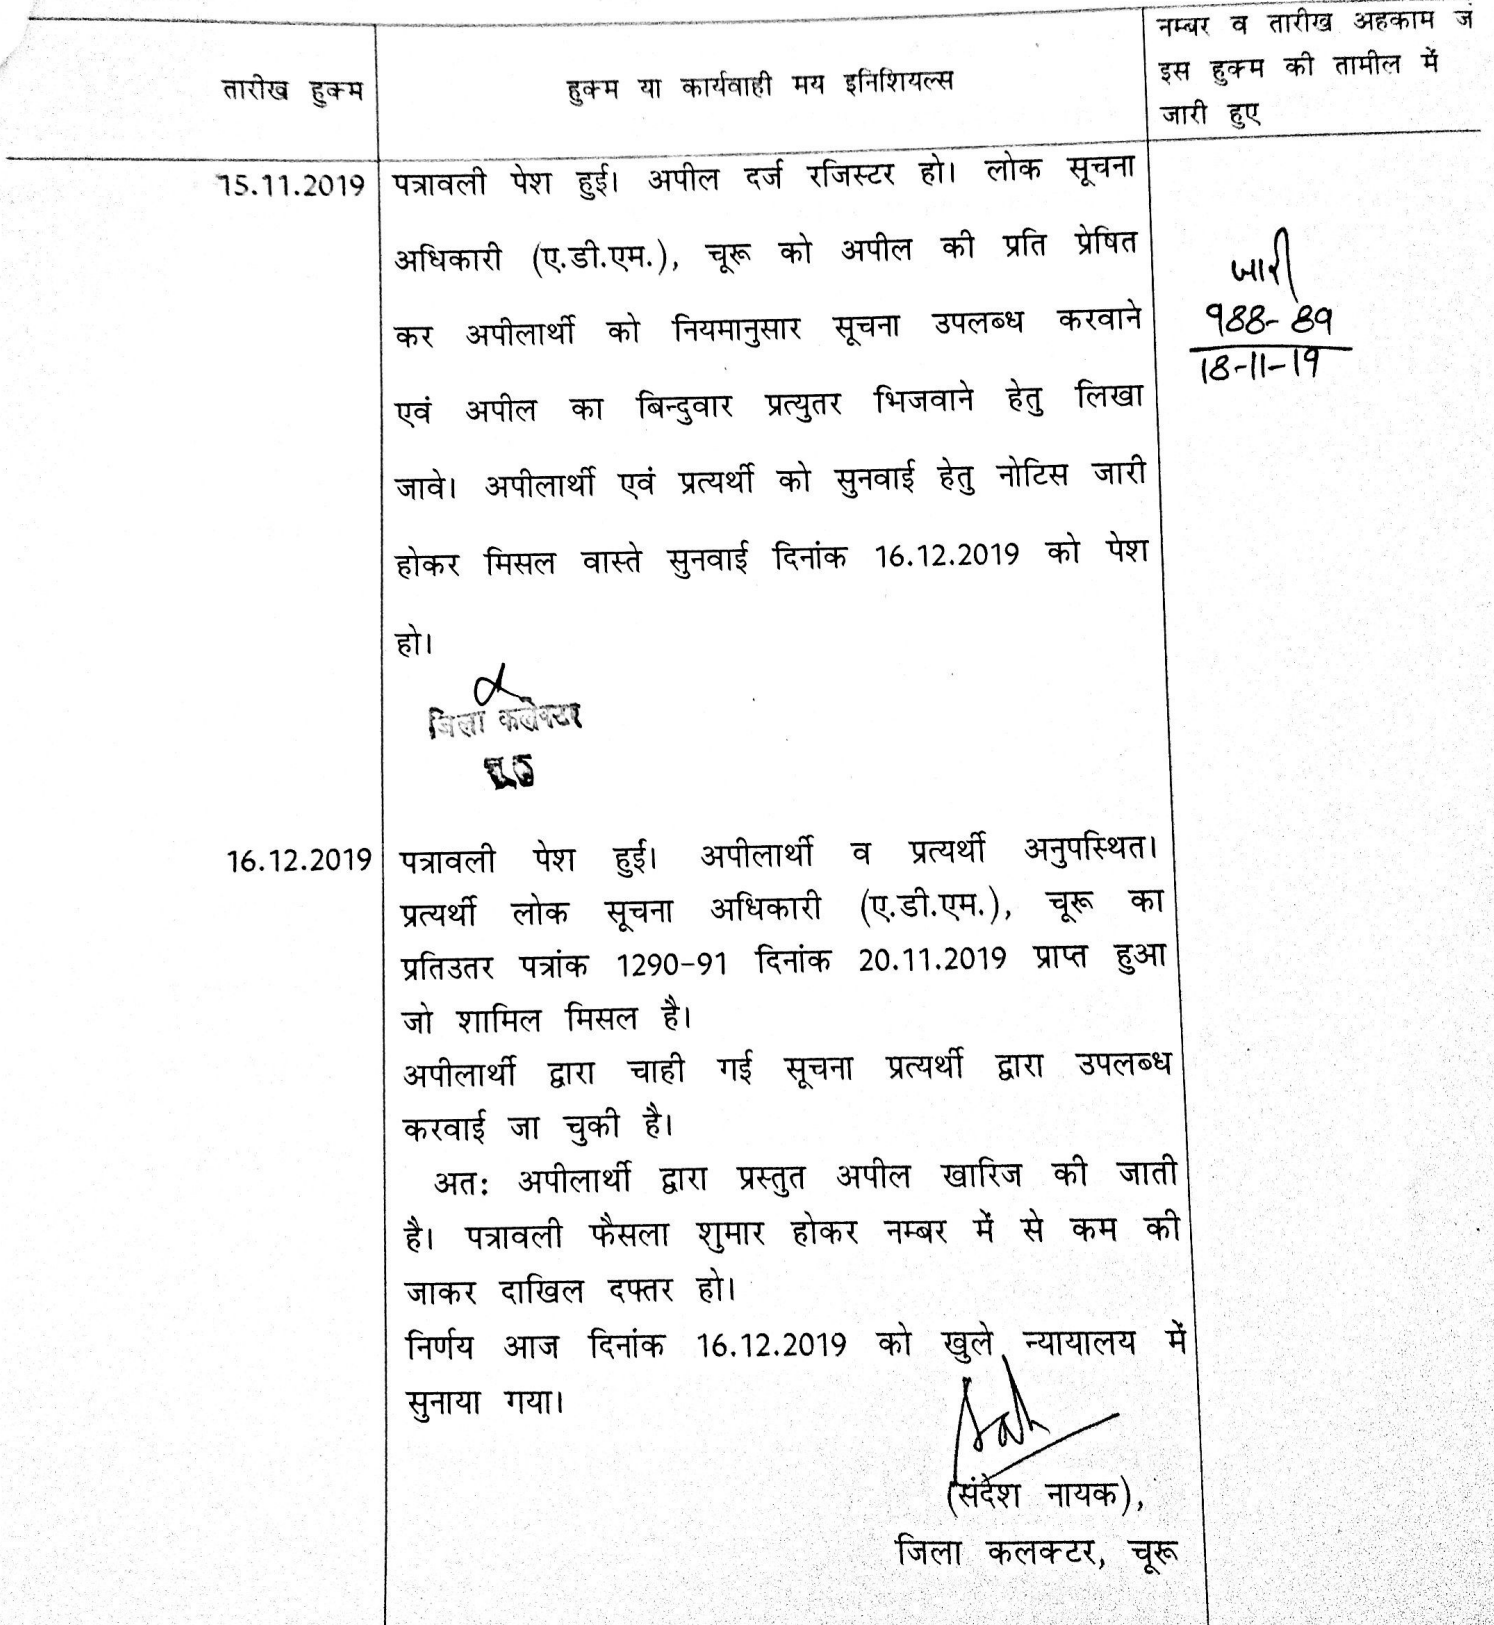 तारीख हुक्म
हुक्म या कार्यवाही मय इनिशियल्स
नम्बर व तारीख अहकाम ज
इस हुक्म की तामील में
जारी हुए
15.11.2019
पत्रावली पेश हुई। अपील दर्ज रजिस्टर हो। लोक सूचना
अधिकारी (ए.डी.एम.), चूरू को अपील की प्रति प्रेषित
कर अपीलार्थी को नियमानुसार सूचना उपलब्ध करवाने
एवं अपील का बिन्दुवार प्रत्युतर भिजवाने हेतु लिखा
जावे। अपीलार्थी एवं प्रत्यर्थी को सुनवाई हेतु नोटिस जारी
होकर मिसल वास्ते सुनवाई दिनांक 16.12.2019 को पेश
हो।
जारी
988-89
18-11-19
जिला कलेक्टर
चूरू
16.12.2019
पत्रावली पेश हुई। अपीलार्थी व प्रत्यर्थी अनुपस्थित।
प्रत्यर्थी लोक सूचना अधिकारी (ए.डी.एम.), चूरू का
प्रतिउतर पत्रांक 1290-91 दिनांक 20.11.2019 प्राप्त हुआ
जो शामिल मिसल है।
अपीलार्थी द्वारा चाही गई सूचना प्रत्यर्थी द्वारा उपलब्ध
करवाई जा चुकी है।
अतः अपीलार्थी द्वारा प्रस्तुत अपील खारिज की जाती
है। पत्रावली फैसला शुमार होकर नम्बर में से कम की
जाकर दाखिल दफ्तर हो।
निर्णय आज दिनांक 16.12.2019 को खुले न्यायालय में
सुनाया गया।
(संदेश नायक),
जिला कलक्टर, चूरू